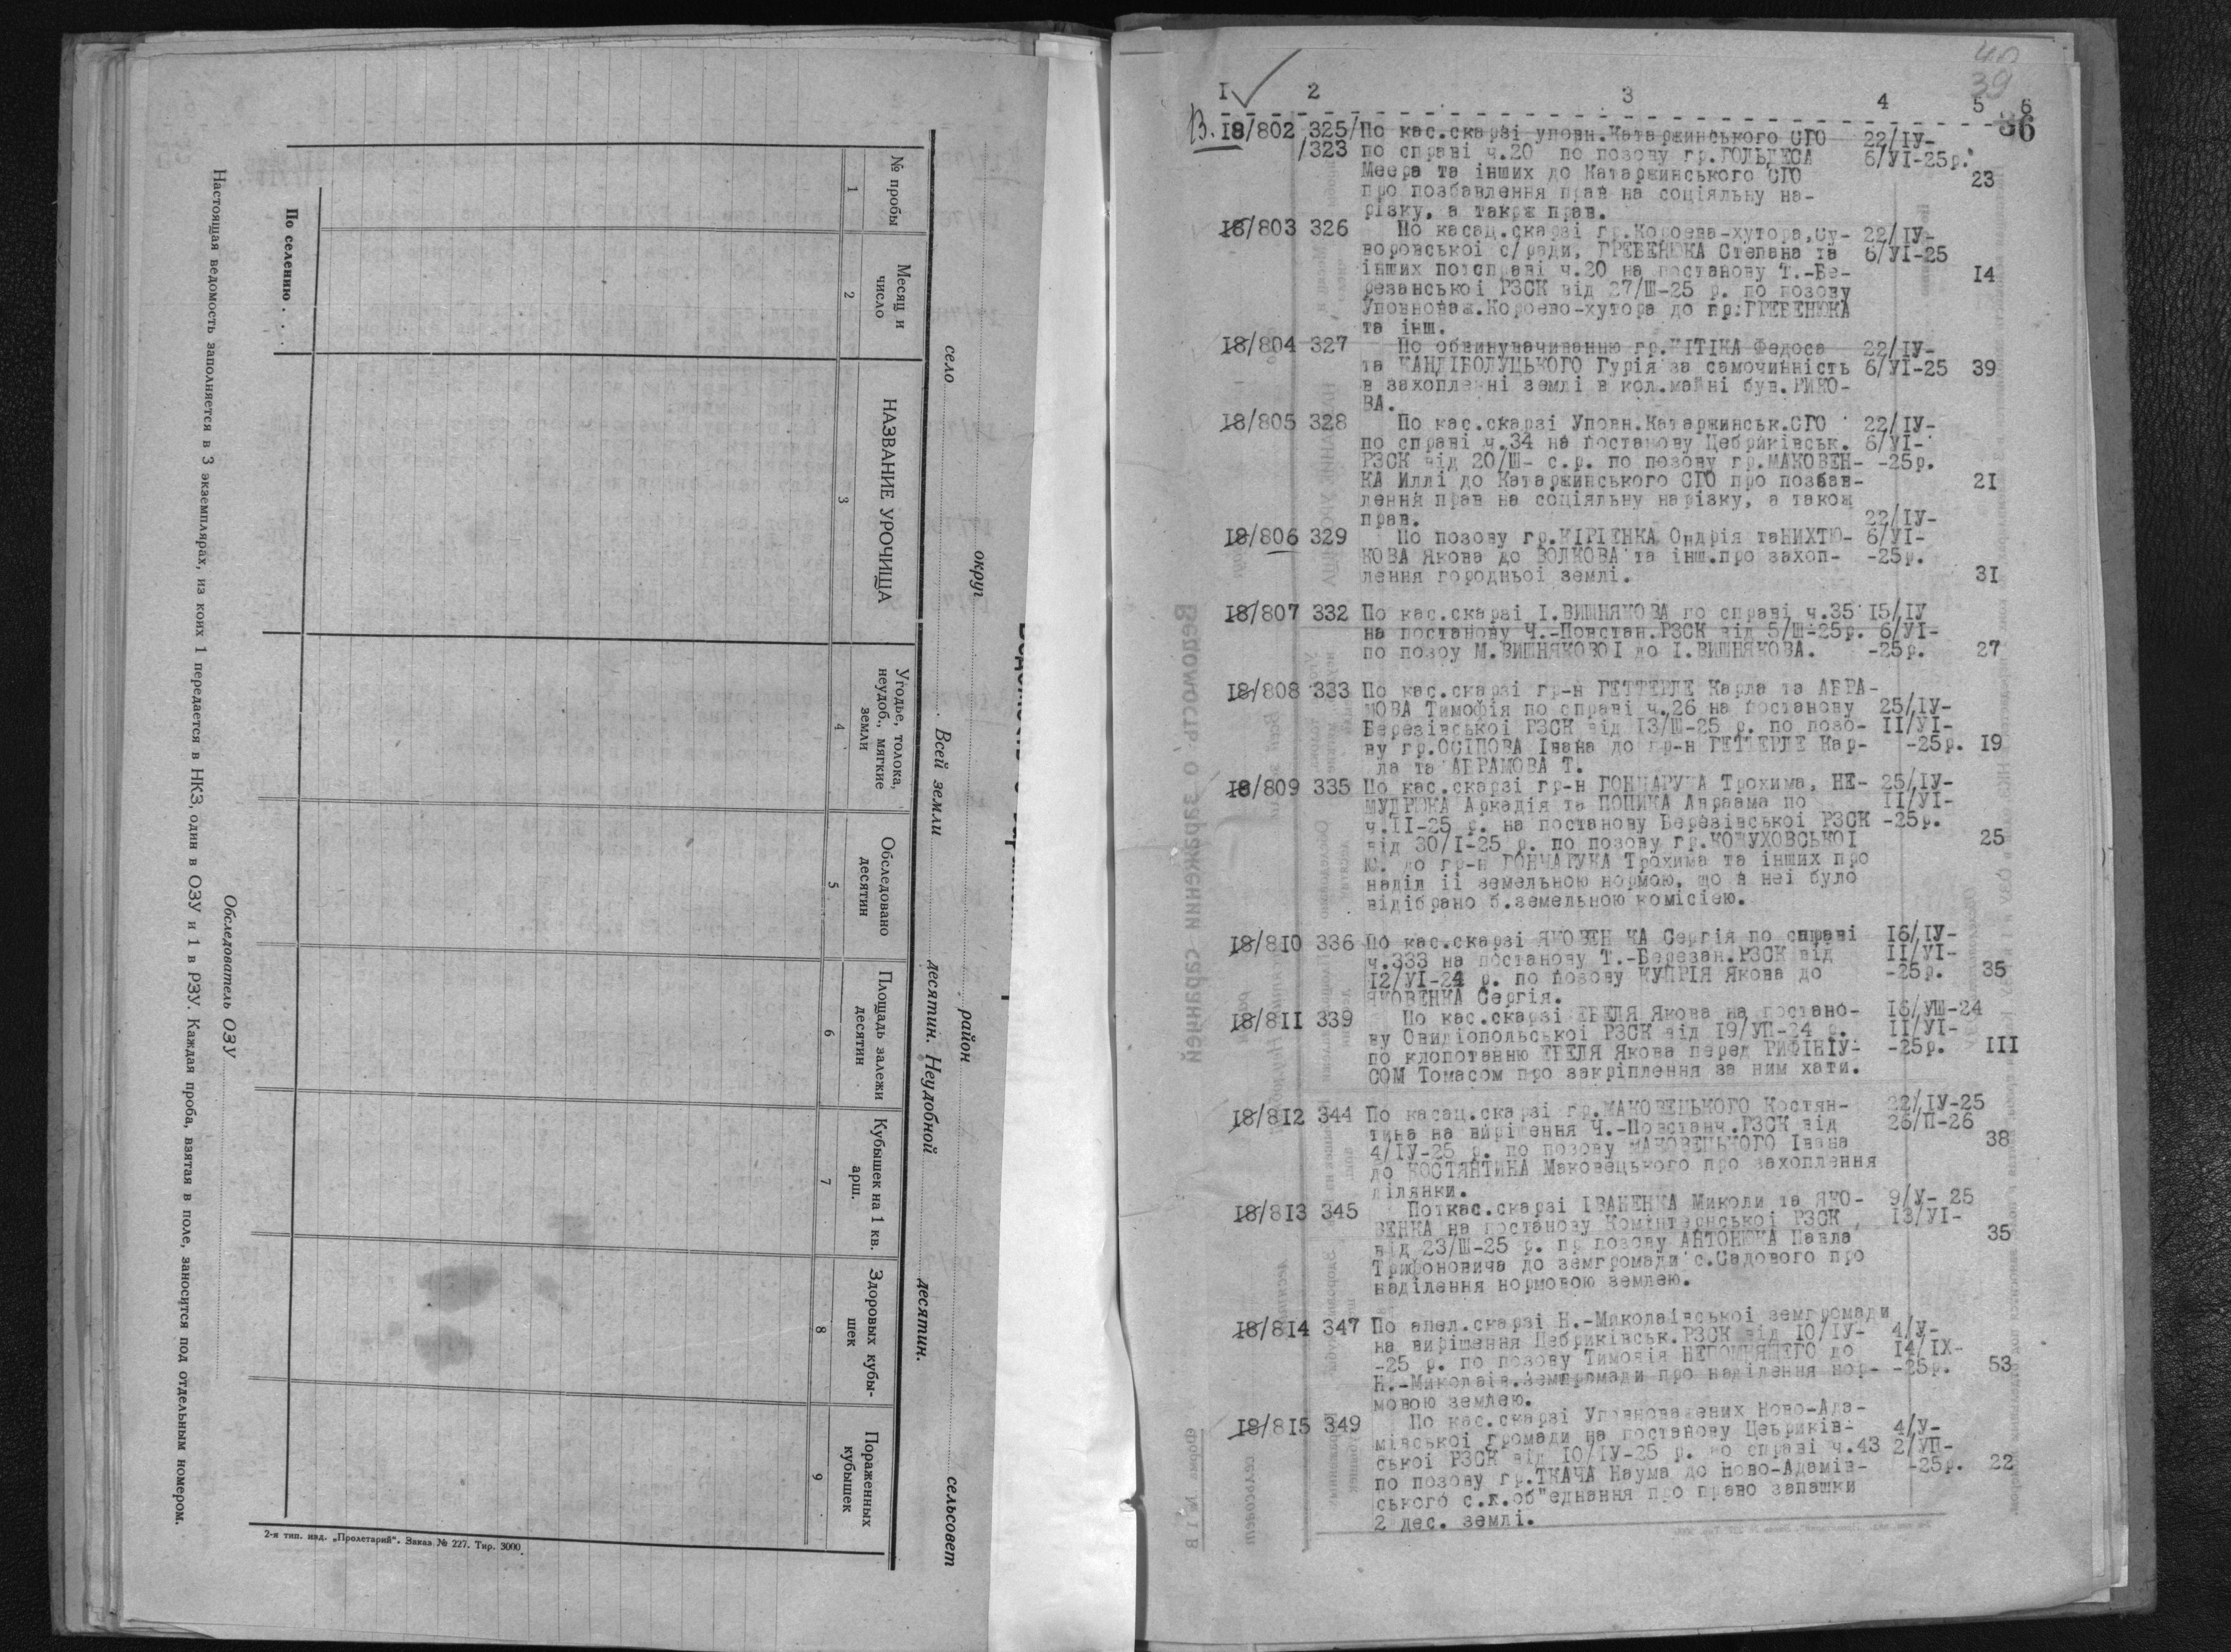 Ведомость о заражении
село округ район
Всей земли десятин. Неудобной десятин. сельсовет
№ пробы
Месяц и число
НАЗВАНИЕ УРОЧИЩА
Угодье, толока, неудоб., мягкие земли
Обследовано десятин
Площадь залежи десятин
Кубышек на 1 кв. арш.
Здоровых кубышек
Пораженных кубышек
1 2 3 4 5 6 7 8 9
По селению . . .
Обследователь ОЗУ
Настоящая ведомость заполняется в 3 экземплярах, из коих 1 передается в НКЗ, один в ОЗУ и 1 в РЗУ. Каждая проба, взятая в поле, заносится под отдельным номером.
2-я тип. изд. „Пролетарий". Заказ № 227. Тир. 3000
40
39
I 2 3 4 5 6
36
В. I8/802 325/ По кас.скарзі уповн.Катаржинського СГО 22/IУ-
/323 по справі ч.20 по позову гр.ГОЛЬДЕСА 6/УI-25р.
Меера та інших до Катаржинського СГО 23
про позбавлення прав на соціяльну на-
різку, а також прав.
I8/803 326 По касац.скарзі гр.Короева-хутора,Су- 22/IУ-
воровської с/ради, ГРЕБЕНЮКА Степана та 6/УI-25
інших по справі ч.20 на постанову Т.-Бе- I4
резанської РЗСК від 27/Ш-25 р. по позову
Уповноваж.Короево-хутора до гр.ГРЕБЕНЮКА
та інш.
I8/804 327 По обвинувачиванню гр.КІТІКА Федоса 22/IУ-
та КАНДІБОЛУЦЬКОГО Гурія за самочинність 6/УI-25 39
в захопленні землі в кол.майні був.РИКО-
ВА.
I8/805 328 По кас.скарзі Уповн.Катаржинськ.СГО 22/IУ-
по справі ч.34 на постанову Цебриківськ. 6/УI-
РЗСК від 20/Ш- с.р. по позову гр.МАКОВЕН- -25р.
КА Иллі до Катаржинського СГО про позбав- 2I
лення прав на соціяльну нарізку, а також
прав. 22/IУ-
I8/806 329 По позову гр.КІРІЕНКА Ондрія таНИХТЮ- 6/УI-
КОВА Якова до ВОЛКОВА та інш.про захоп- -25р.
лення городньої землі. 3I
I8/807 332 По кас.скарзі І.ВИШНЯКОВА по справі ч.35 I5/IУ
на постанову Ч.-Повстан.РЗСК від 5/Ш-25р. 6/УI-
по позоу М.ВИШНЯКОВОІ до І.ВИШНЯКОВА. -25р. 27
I8/808 333 По кас.скарзі гр-н ГЕТТЕРЛЕ Карла та АБРА-
МОВА Тимофія по справі ч.26 на постанову 25/IУ-
Березівської РЗСК від I3/Ш-25 р. по позо- II/УI-
ву гр.ОСІПОВА Івана до гр-н ГЕТТЕРЛЕ Кар- -25р. I9
ла та АБРАМОВА Т.
I8/809 335 По кас.скарзі гр-н ГОНЧАРУКА Трохима, НЕ- 25/IУ-
МУДРЮКА Аркадія та ПОПИКА Авраама по II/УI-
ч.II-25 р. на постанову Березівської РЗСК -25р.
від 30/I-25 р. по позову гр.КОЖУХОВСЬКОІ 25
Ю. до гр-н ГОНЧАРУКА Трохима та інших про
наділ її земельною нормою, що в неї було
відібрано б.земельною комісією.
I8/810 336 По кас.скарзі ЯКОВЕН КА Сергія по справі I6/IУ-
ч.333 на постанову Т.-Березан.РЗСК від II/УI-
I2/УI-24 р. по позову КУПРІЯ Якова до -25р. 35
ЯКОВЕНКА Сергія.
I8/8II 339 По кас.скарзі ЕБЕЛЯ Якова на постано- I6/УШ-24
ву Овидіопольської РЗСК від I9/УП-24 р. II/УI-
по клопотанню ЕБЕЛЯ Якова перед РИФІНІУ- -25р. III
СОМ Томасом про закріплення за ним хати.
I8/8I2 344 По касац.скарзі гр.МАКОВЕЦЬКОГО Костян- 22/IУ-25
тина на вирішення Ч.-Повстанч.РЗСК від 26/П-26
4/IУ-25 р. по позову МАКОВЕЦЬКОГО Івана 38
до КОСТЯНТИНА Маковецького про захоплення
ділянки.
I8/8I3 345 Поткас.скарзі ІВАНЕНКА Миколи та ЯКО- 9/У- 25
ВЕНКА на постанову Комінтернської РЗСК , I3/УI-
від 23/Ш-25 р. пр позову АНТОНЮКА Павла 35
Трифоновича до земгромади с.Садового про
наділення нормовою землею.
I8/8I4 347 По апел.скарзі Н.-Миколаівської земгромади
на вирішення Цебриківськ.РЗСК від I0/IУ- 4/У-
-25 р. по позову Тимофія НЕПОМНЯЩЕГО до I4/IX-
Н.-Миколаів.земгромади про наділення нор- -25р. 53
мовою землею.
I8/8I5 349 По кас.скарзі Уповноважених Ново-Ада-
мівської громади на постанову Цебриків- 4/У-
ської РЗСК від I0/IУ-25 р. по справі ч.43 2/УП-
по позову гр.ТКАЧА Наума до Ново-Адамів- -25р. 22
ського с.г.об"еднання про право запашки
2 дес. землі.